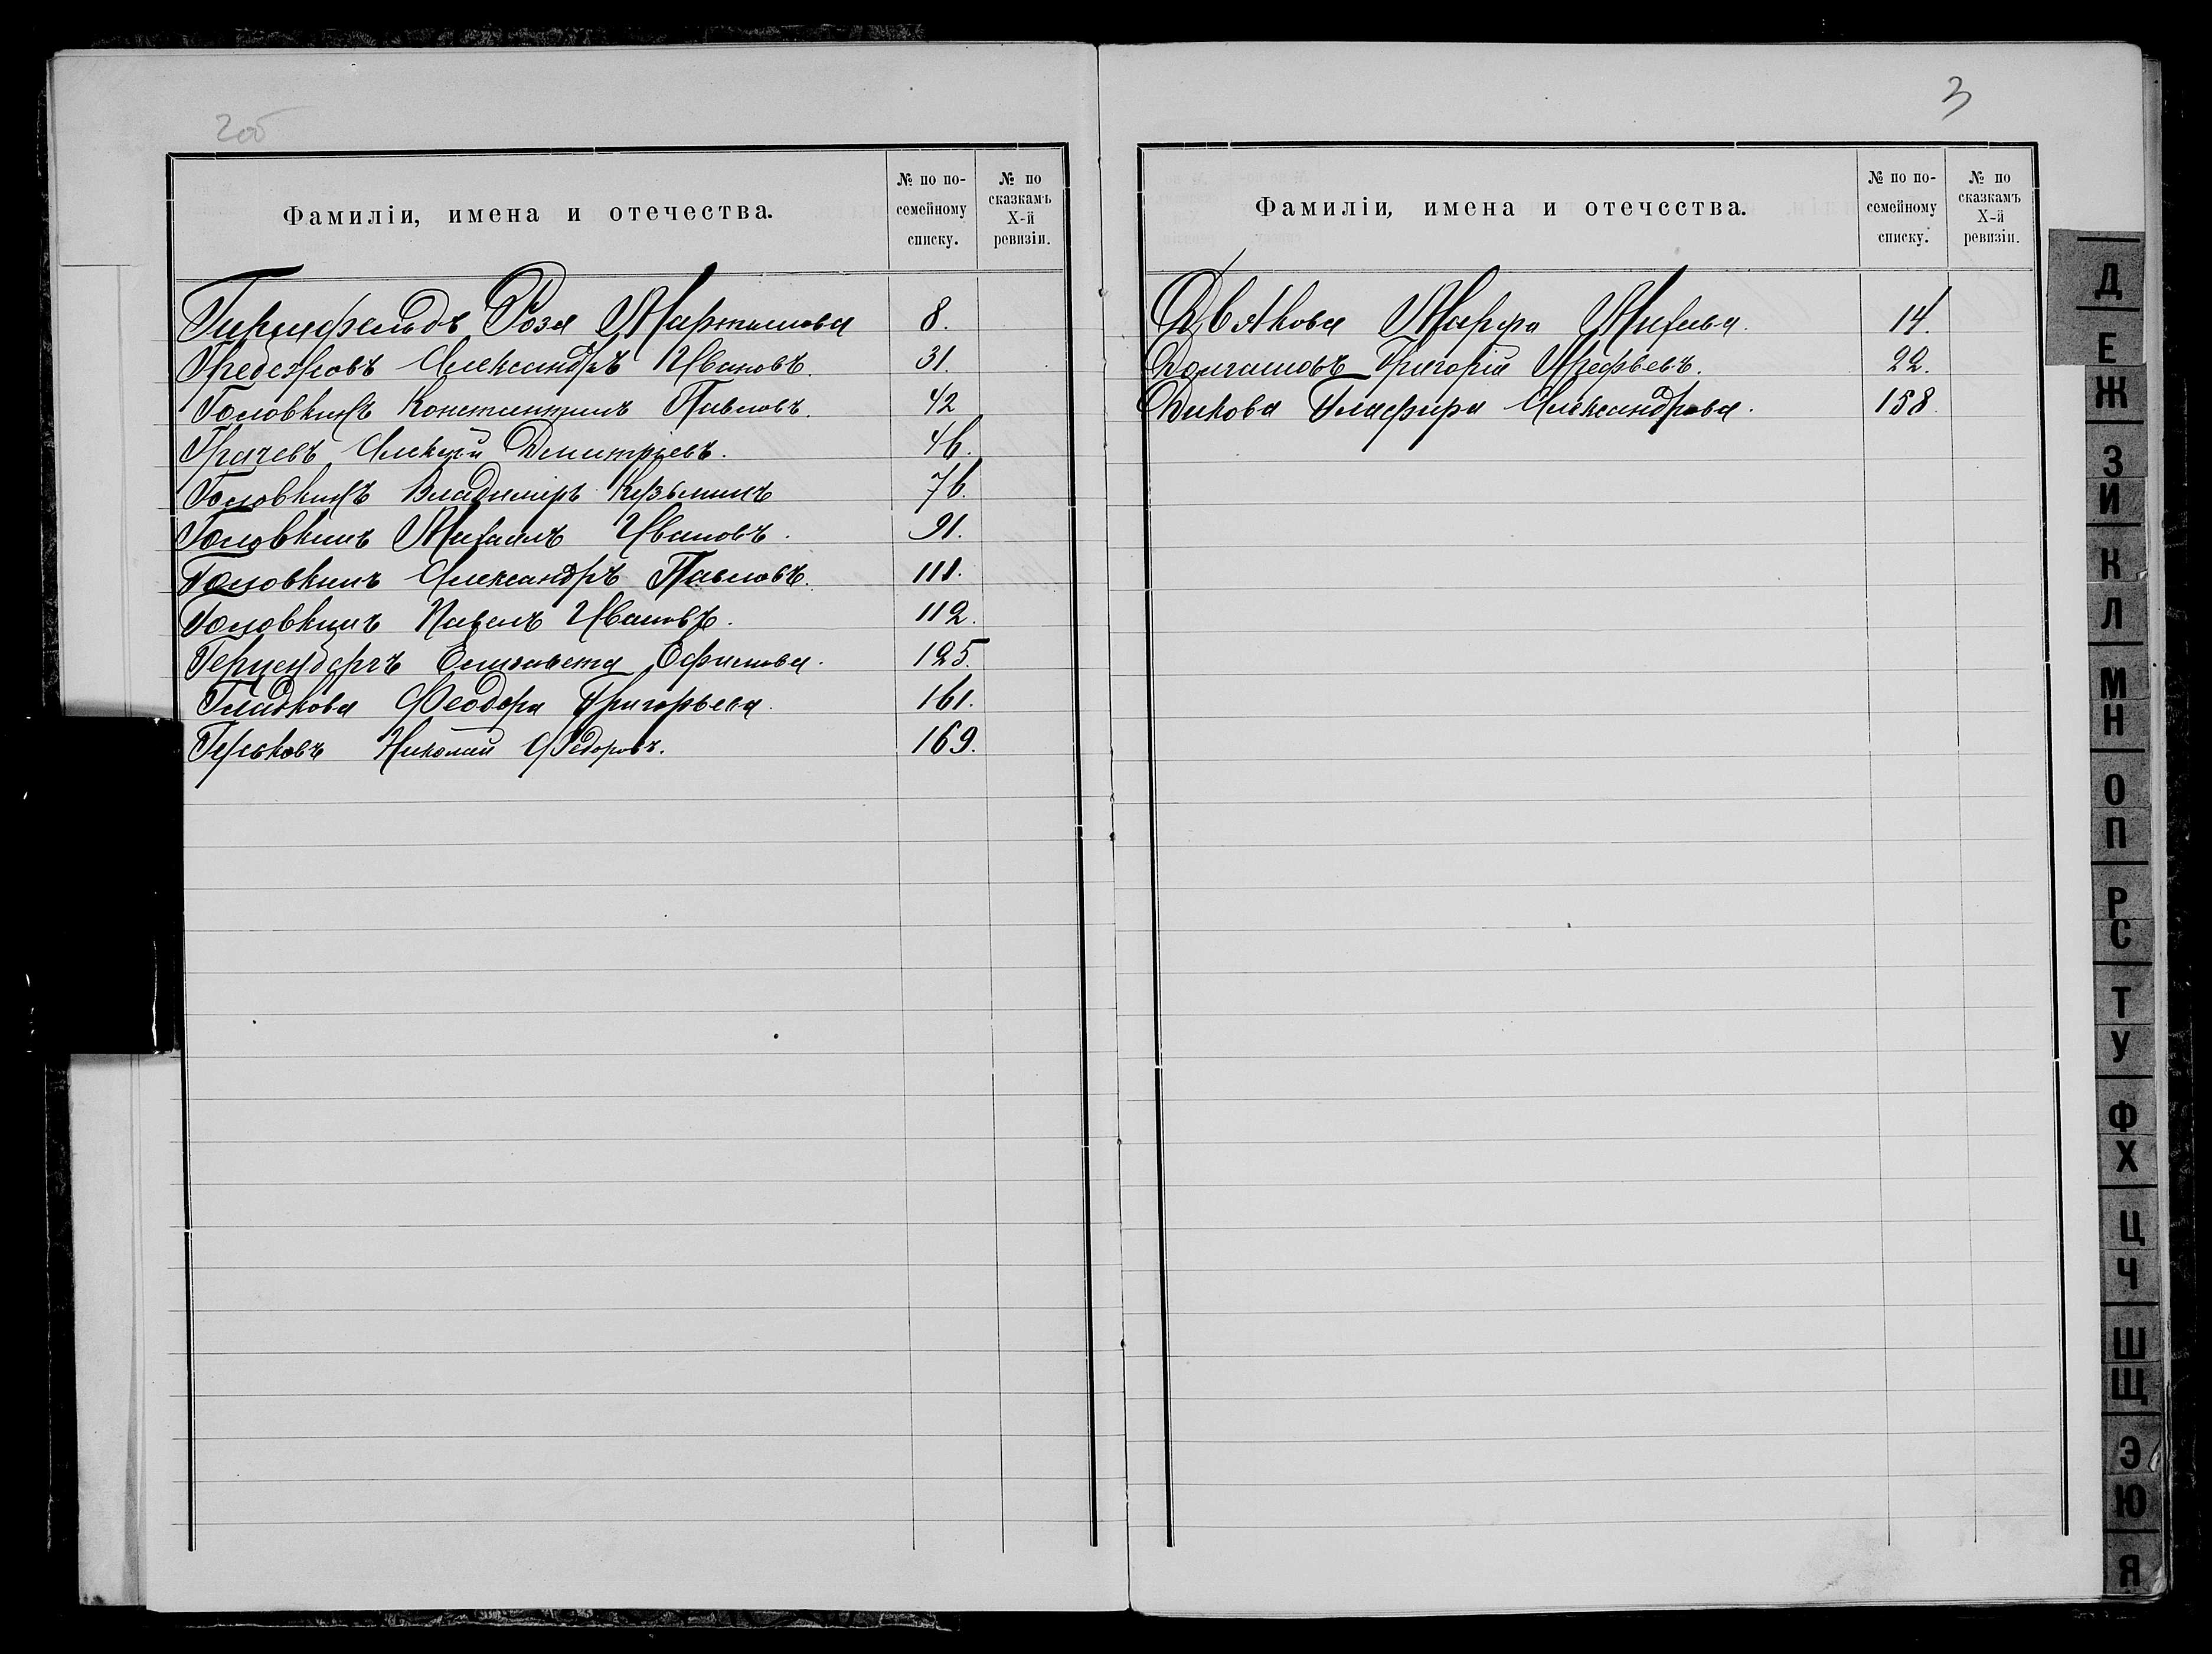 2об
Фамиліи, имена и отечества.
№ по по-
семейному
списку.
№ по
сказкамъ
X-й
ревизіи.
Гиршфельдъ Роза Мартинова 8.
Александръ Ивановъ. 31.
Головкинъ Константинъ Павловъ. 42
Грачевъ Алексѣй Дмитріевъ. 46.
Головкинъ Владиміръ Кузьминъ 76.
Головкинъ Михаилъ Ивановъ. 91.
Головкинъ Александръ Павловъ. 111.
Головкинъ Павелъ Ивановъ. 112.
Герценбергъ Елизавета Ефимова. 125.
Гладкова Феодора Григорьева. 161.
Николай Федоровъ. 169.
3
Фамиліи, имена и отечества.
№ по по-
семейному
списку.
№ по
сказкамъ
X-й
ревизіи.
Дьякова Марфа 14.
Григорій Арефьевъ. 22.
Дикова Глафира Александрова. 158.
Д
Е
Ж
З
И
К
Л
М
Н
О
П
Р
С
Т
У
Ф
Х
Ц
Ч
Ш
Щ
Э
Ю
Я